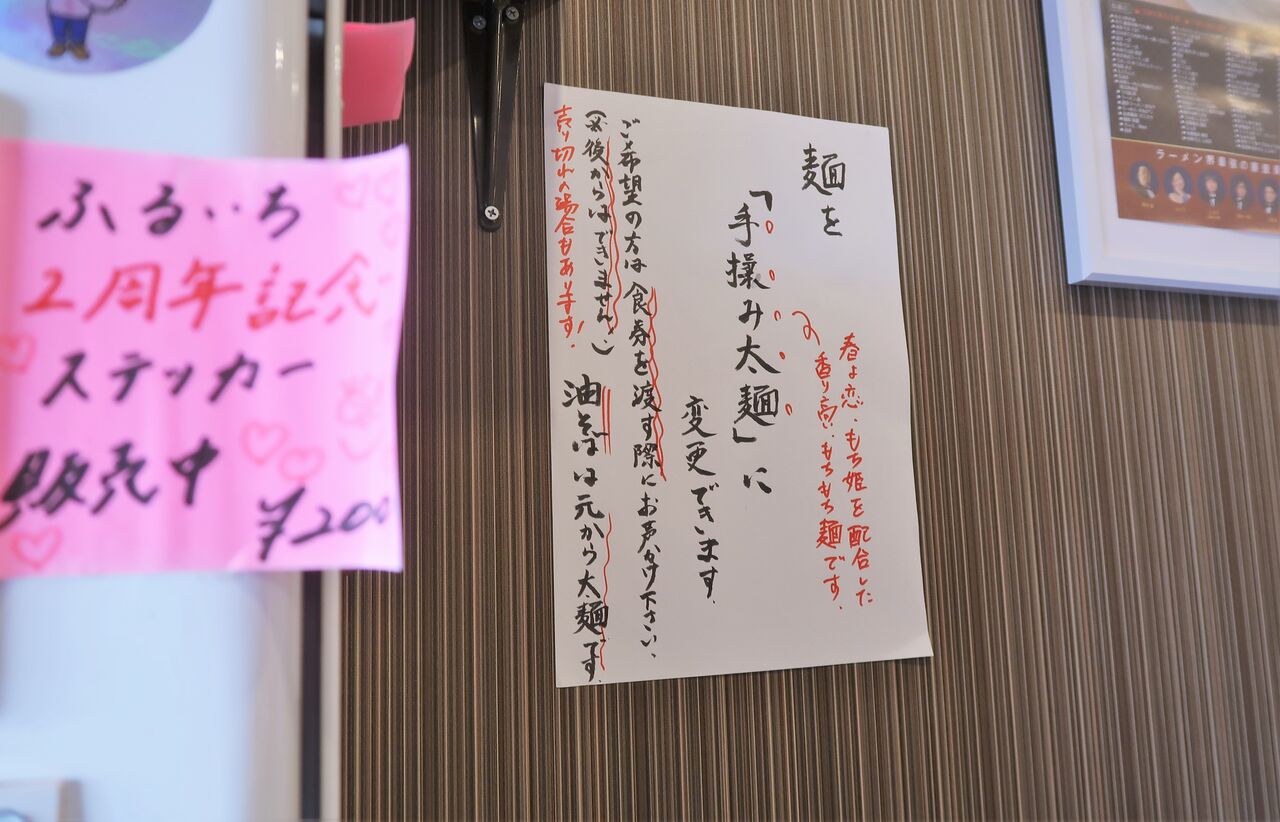 ふるいち
2周年記念
ステッカー
販売中
¥200
麺を
「手揉み太麺」に
変更できます。
春よ恋、もち姫を配合した
香り高い、もちもち麺です。
ご希望の方は食券を渡す際にお声かけ下さい、
(※後からはできません、)
売り切れの場合もあります!
油そばは元から太麺です。